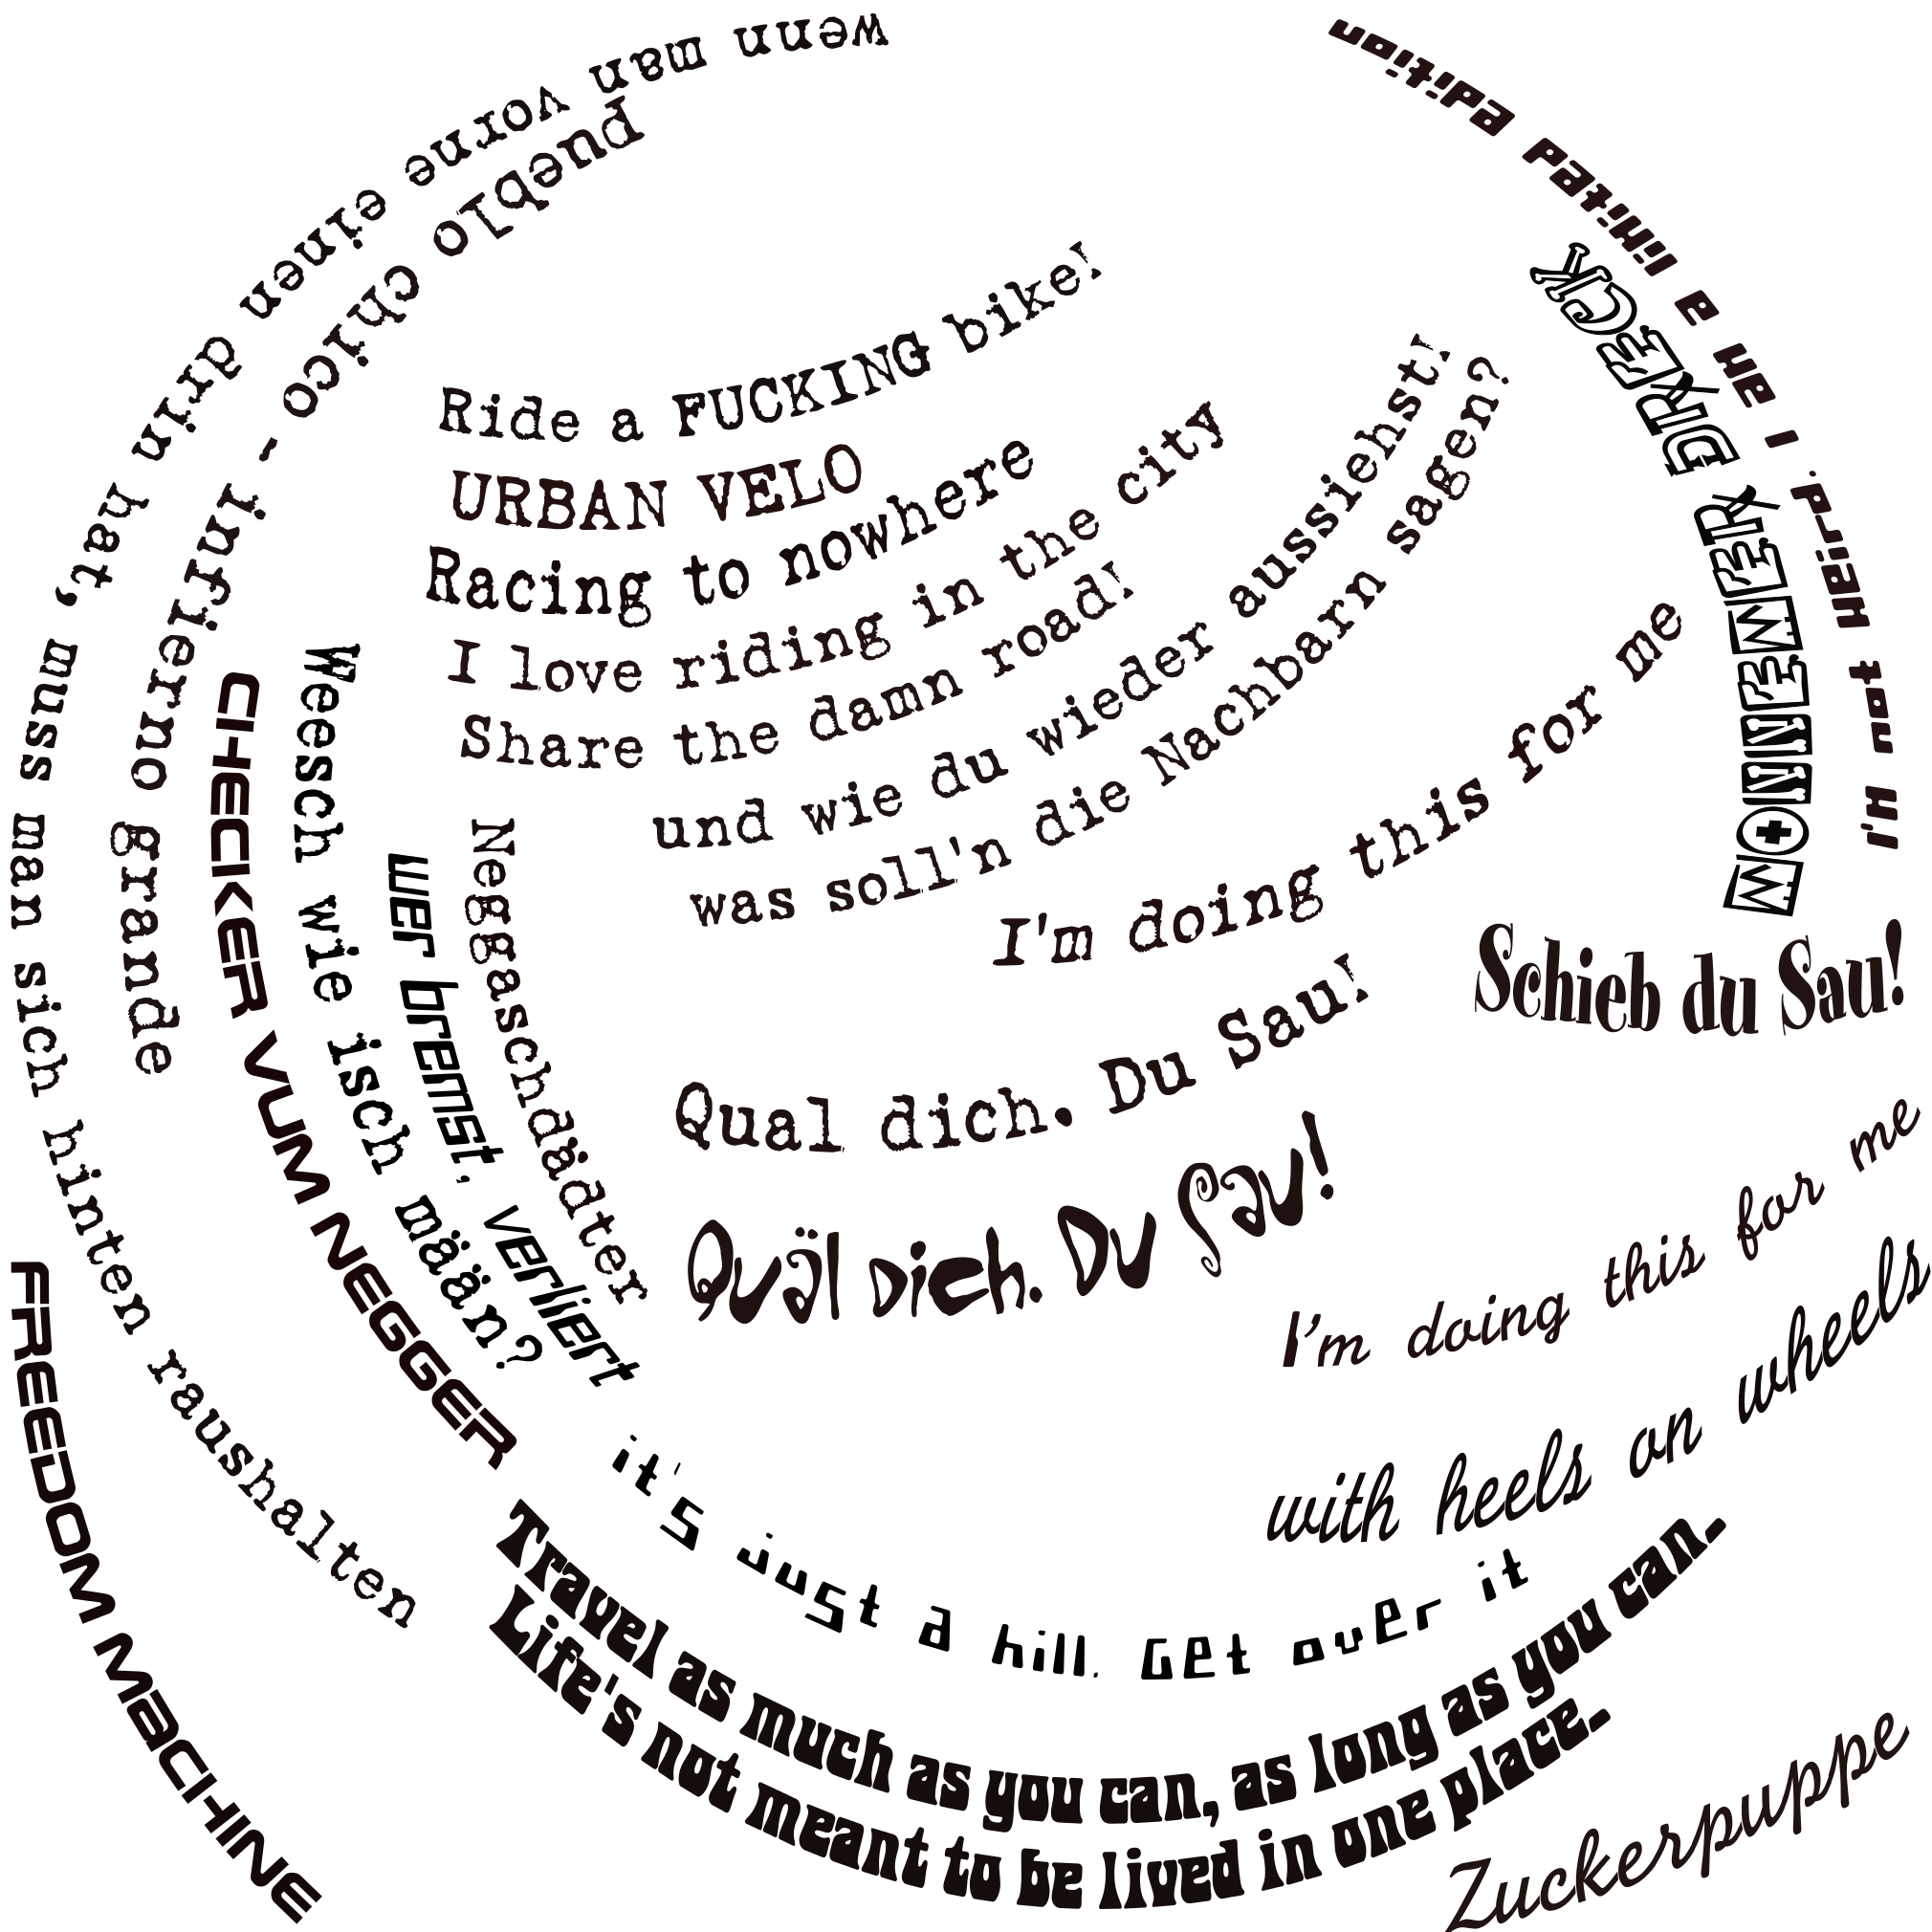 wenn man vorne einen drin hat, muss man sich hinten raushalten
pueblo chico, infierno grande
Ride a FUCKING bike!
URBAN VELO
Racing to nowhere
I love riding in the city
Share the damn road!
und wie du wieder aussiehst,
was soll'n die Nachbarn sagen?
I'm doing this for me
I'm not Weird I am a limited edition
Schieb du Sau!
Qual dich. Du Sau!
Quäl dich. Du Sau!
CHECKER VUM NEGGER
Measch wie isch määh!?
wer bremst, verliert
FREEDOM MACHINE
I'm doing this for me
with heels on wheels
it's just a hill. Get over it
Travel as much as you can, as long as you can.
Life's not meant to be lived in one place.
Zuckerpuppe